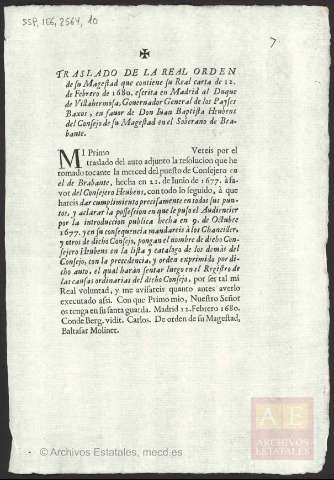 SSP, LEG, 2564, 10
7
✠
TRASLADO DE LA REAL ORDEN
de su Magestad que contiene su Real carta de 12.
de Febrero de 1680. escrita en Madrid al Duque
de Villahermosa, Governador General de los Payses
Baxos, en favor de Don Iuan Baptista Heubens
del Consejo de su Magestad en el Soberano de Bra-
bante.
MI Primo Vereis por el
traslado del auto adjunto la resolucion que he
tomado tocante la merced del puesto de Consejero en
el de Brabante, hecha en 22. de Iunio de 1677. à fa-
vor del Consejero Heubens, con todo lo seguido, à que
hareis dar cumplimiento precisamente en todos sus pun-
tos, y aclarar la possession en que le puso el Audiencier
por la introduccion publica hecha en 9. de Octubre
1677. y en su consequencia mandareis à los Chanciller,
y otros de dicho Consejo, pongan el nombre de dicho Con-
sejero Heubens en la lista y catalogo de los demás del
Consejo, con la precedencia, y orden exprimido por di-
cho auto, el qual harán sentar luego en el Registro de
las causas ordinarias del dicho Consejo, por ser tal mi
Real voluntad, y me avisareis quanto antes averlo
executado assi. Con que Primo mio, Nuestro Señor
os tenga en su santa guarda. Madrid 12. Febrero 1680.
Conde Berg. vidit. Carlos. De orden de su Magestad,
Baltasar Molinet.
AE
ARCHIVOS
ESTATALES
© Archivos Estatales, mecd.es